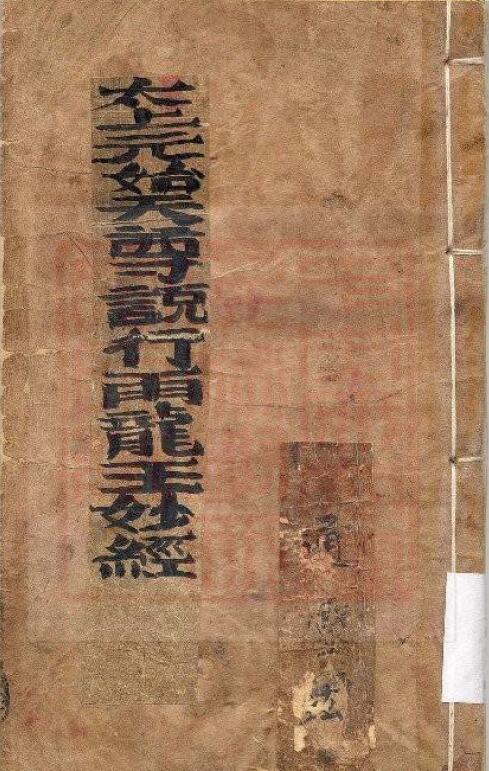 太上元始天尊說行雨龍王妙經
通